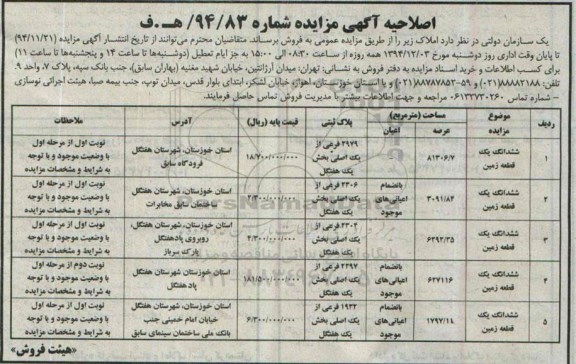 اصلاحیه آگهی مزایده شماره ۹۴/۸۳/ هـ.ف
یک سازمان دولتی در نظر دارد املاک زیر را از طریق مزایده عمومی به فروش برساند. متقاضیان محترم می‌توانند از تاریخ انتشار آگهی مزایده (۹۴/۱۱/۲۱)
تا پایان وقت اداری روز دوشنبه مورخ ۱۳۹۴/۱۲/۰۳ همه روزه از ساعت ۰۸:۳۰ الی ۱۵:۰۰ به جز ایام تعطیل (دوشنبه‌ها تا ساعت ۱۴ و پنجشنبه‌ها تا ساعت ۱۱)
برای کسب اطلاعات و خرید اسناد مزایده به دفتر فروش به نشانی: تهران: میدان آرژانتین، خیابان شهید مغنیه (بهاران سابق)، جنب بانک سپه، پلاک ۷، واحد ۹.
تلفن: ۸۸۸۸۲۱۸۸(۰۲۱) و ۵۹-۸۸۷۸۷۸۵۳(۰۲۱) و یا استان خوزستان، اهواز، خیابان لشکر، ابتدای بلوار قدس، میدان توپ، جنب بیمه صبا، هیئت اجرائی نوسازی
– شماره تماس ۰۶۱۳۳۷۳۰۲۶۰ مراجعه و جهت اطلاعات بیشتر با مدیریت فروش تماس حاصل فرمایند.
ردیف موضوع مزایده مساحت (مترمربع) عرصه اعیان پلاک ثبتی قیمت پایه (ریال) آدرس ملاحظات
۱ ششدانگ یک قطعه زمین ۸۱۳۰۶/۷ ۲۹۷۹ فرعی از یک اصلی بخش یک هفتگل ۱۸/۷۰۰/۰۰۰/۰۰۰ استان خوزستان، شهرستان هفتگل فرودگاه سابق نوبت اول از مرحله اول با وضعیت موجود و با توجه به شرایط و مشخصات مزایده
۲ ششدانگ یک قطعه زمین ۳۰۹۱/۸۴ بانضمام اعیانی‌های موجود ۲۳۰۶ فرعی از یک اصلی بخش یک هفتگل استان خوزستان، شهرستان هفتگل ساختمان سابق مخابرات نوبت اول از مرحله اول با وضعیت موجود و با توجه به شرایط و مشخصات مزایده
۳ ششدانگ یک قطعه زمین ۶۲۹۲/۳۵ ۲۳۰۲ فرعی از یک اصلی بخش یک هفتگل ۲/۳۰۰/۰۰۰/۰۰۰ استان خوزستان، شهرستان هفتگل روبروی پادهفتگل پارک سرباز نوبت اول از مرحله اول با وضعیت موجود و با توجه به شرایط و مشخصات مزایده
۴ ششدانگ یک قطعه زمین ۶۲۷۱۱۶ بانضمام اعیانی‌های موجود ۲۲۹۷ فرعی از یک اصلی بخش یک هفتگل ۱۸۱/۵۰۰/۰۰۰/۰۰۰ استان خوزستان شهرستان هفتگل پاد هفتگل نوبت دوم از مرحله اول با وضعیت موجود و با توجه به شرایط و مشخصات مزایده
۵ ششدانگ یک قطعه زمین ۱۷۹۷/۱۸ بانضمام اعیانی‌های موجود ۱۹۳۳ فرعی از یک اصلی بخش یک هفتگل ۶/۳۰۰/۰۰۰/۰۰۰ استان خوزستان، شهرستان هفتگل خیابان امام خمینی جنب بانک ملی ساختمان سینمای سابق نوبت اول از مرحله اول با وضعیت موجود و با توجه به شرایط و مشخصات مزایده
«هیئت فروش»